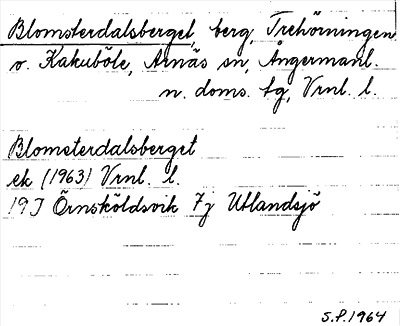 Blomsterdalsberget, berg, Trehörningen
o. Kakuböle, Arnäs sn, Ångermanl.
n. doms. fg, Vrnl. l.
Blomsterdalsberget
ek (1963) Vrnl. l.
19J Örnsköldsvik 7j Utlandsjö
S.P. 1964